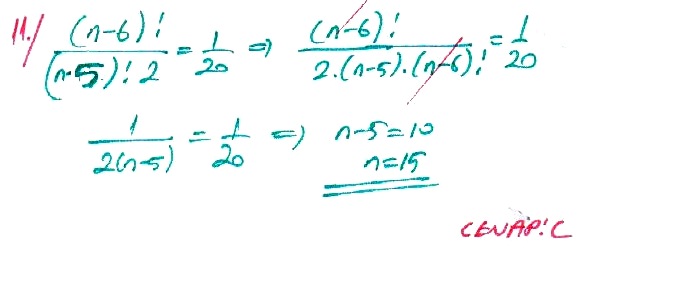 11./ (n-6)! / (n-5)! 2 = 1/20 ⇒ (n-6)! / 2.(n-5).(n-6)! = 1/20
1 / 2(n-5) = 1/20 ⇒ n-5=10
n=15
CEVAP: C